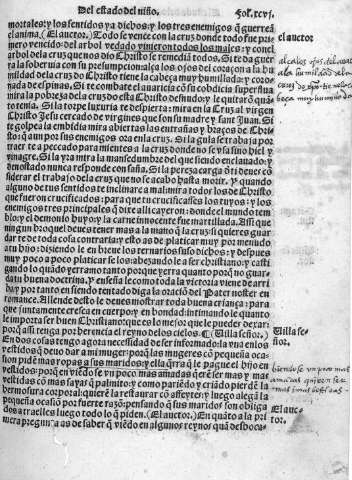 Del estado del niño. Fol. xcvj.
mortales: y los sentidos ya dichos: y los tres enemigos q̃ guerreã
el anima. (El auctor.) Todo se vence con la cruz donde todo fue pri
mero vencido: del arbol vedado vinieron todos los males: y con el
arbol dela cruz que nos dio Christo se remedia todo. Si te da guer
ra la soberuia con su presumpcion alça los ojos del coraçon a la hu
mildad dela cruz do Christo tiene la cabeça muy humillada: y coro
nada de espinas. Si te combate el auaricia cõ su cobdicia superflua
mira la pobreza dela cruz do esta Christo desnudo: y le quitarõ quã
to tenia. Si la torpe luxuria te despierta: mira en la Cruz al virgen
Christo Jesu cercado de virgines que son su madre y sant Juan. Si
te golpea la embidia mira abiertas las entrañas y braços de Chri
sto: q̃ aun por sus enemigos ora en la cruz. Si la gula se trabaja por
traer te a peccado para mientes a la cruz donde no se vsa sino hiel y
vinagre. Si la yra mira la mansedumbre del que siendo enclauado: y
denostado nunca responde con saña. Si la pereza carga õ ti deues cõ
siderar el trabajo dela cruz que no se acabo hasta morir. y quando
alguno de tus sentidos te inclinare a mal mira todos los de Christo
que fueron crucificados: para que tu crucificasses los tuyos: y los
enemigos tres principales q̃ dixe alli cayeron: donde el mundo tem
blo: y el demonio huyo: y la carne innocente fue martillada. Assi que
ningun broquel deues tener mas a la mano q̃ la cruz si quieres guar
dar te de toda cosa contraria: y esto as de platicar muy por menudo
a tu hijo: diziendo le en breue los ternarios suso dichos: y despues
muy poco a poco platicar se los abezando le a ser christiano: y casti
gando lo quãdo yerra no tanto porque yerra quanto porq̃ no guar
da tu buena doctrina, y enseña le como toda la victoria viene de arri
ba: y por tanto en siendo tentado diga la oraciõ del pater noster en
romance. Allende desto le deues mostrar toda buena criança: para
que juntamente crezca en cuerpo: y en bondad: intimando le quanto
le importa ser buen Christiano: que es lo mejor que le pueder dexar:
porq̃ assi tenga por herencia el reyno delos cielos. (Villa señor.)
En dos cosas tengo agora necessidad de ser informado: la vna en los
vestidos q̃ deuo dar a mi muger: porq̃ las mugeres cõ pequeña oca
sion pidẽ mas ropas a sus maridos: y ella q̃rra q̃ le pague el hijo en
vestidos: porq̃ en viẽdo se vn poco mas amadas quierẽ ser mas y mas
vestidas cõ mas sayas q̃ palmito: y como pariẽdo y criãdo pierdẽ la
hermosura corporal: quierẽ la restaurar cõ affeytes: y luego alegã la
pequeña ocasiõ por fuerte razõ: pensando q̃ sus maridos son obliga
dos a traelles luego todo lo q̃ piden. (El auctor.) En quãto a la pri
mera pregunta as de saber q̃ viẽdo en algunos reynos quã desboca-
el auctor
Villa se-
ñor.
El auc-
tor.